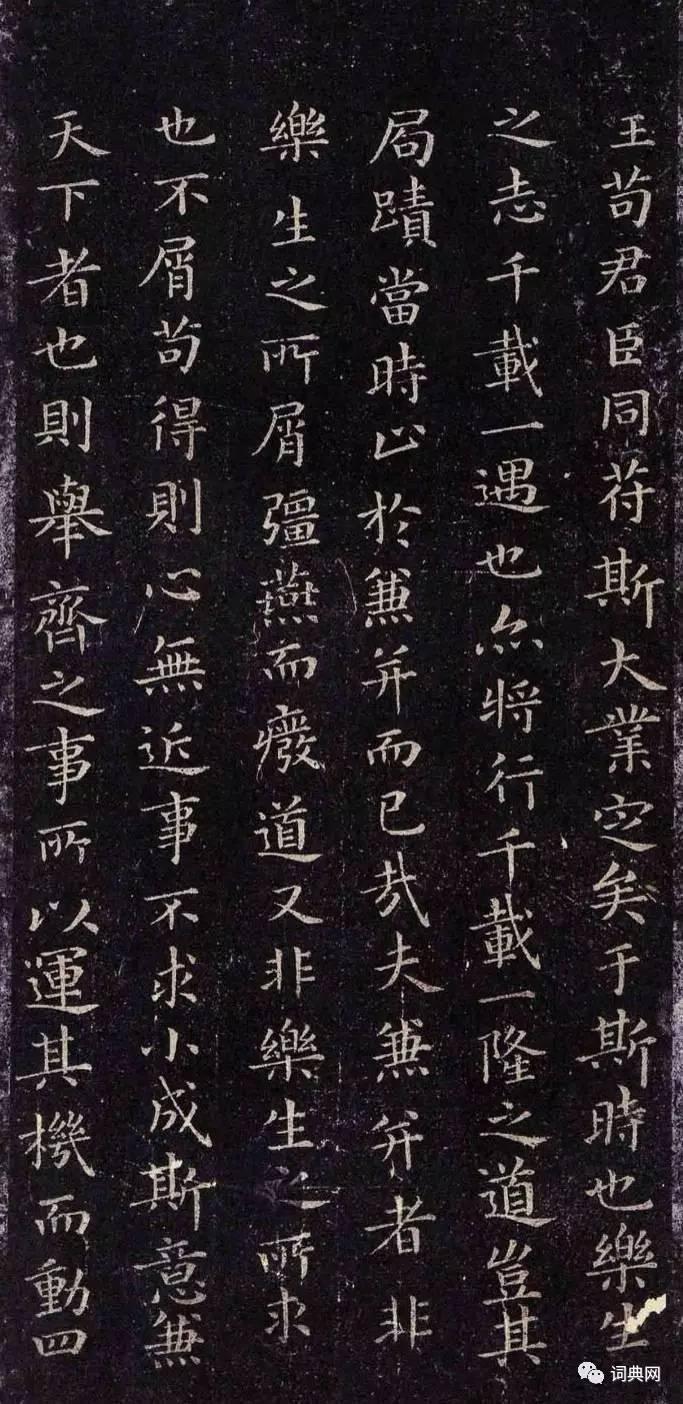 王苟君臣同苻斯大業定矣于斯時也樂生
之志千載一遇也亦將行千載一隆之道豈其
局蹟當時止於兼并而已哉夫兼并者非
樂生之所屑彊燕而癈道又非樂生之所求
也不屑苟得則心無近事不求小成斯意兼
天下者也則舉齊之事所以運其機而動四
词典网